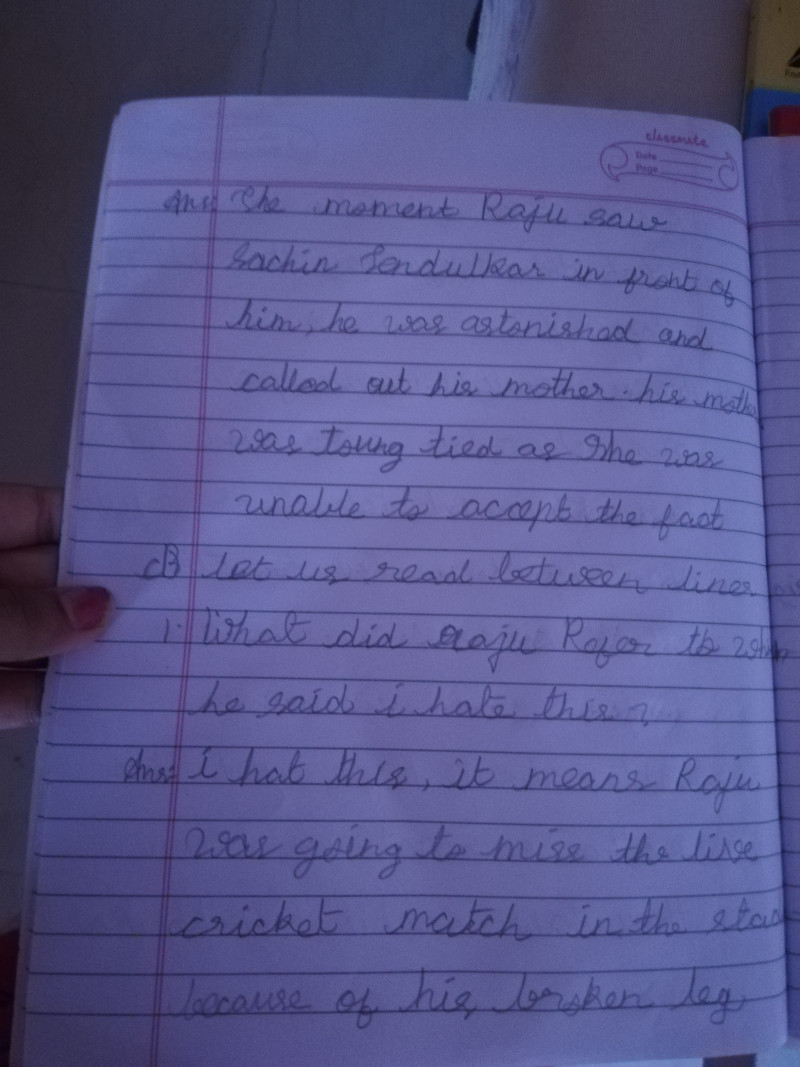 classmate
Date
Page
Ans: The moment Raju saw
Sachin Tendulkar in front of
him, he was astonished and
called out his mother. his moth
was toung tied as She was
unable to accept the fact
B Let us read between lines
1. What did Raju Refer to
he said i hate this?
Ans: i hat this, it means Raju
was going to miss the live
cricket match in the stad
because of his broken leg